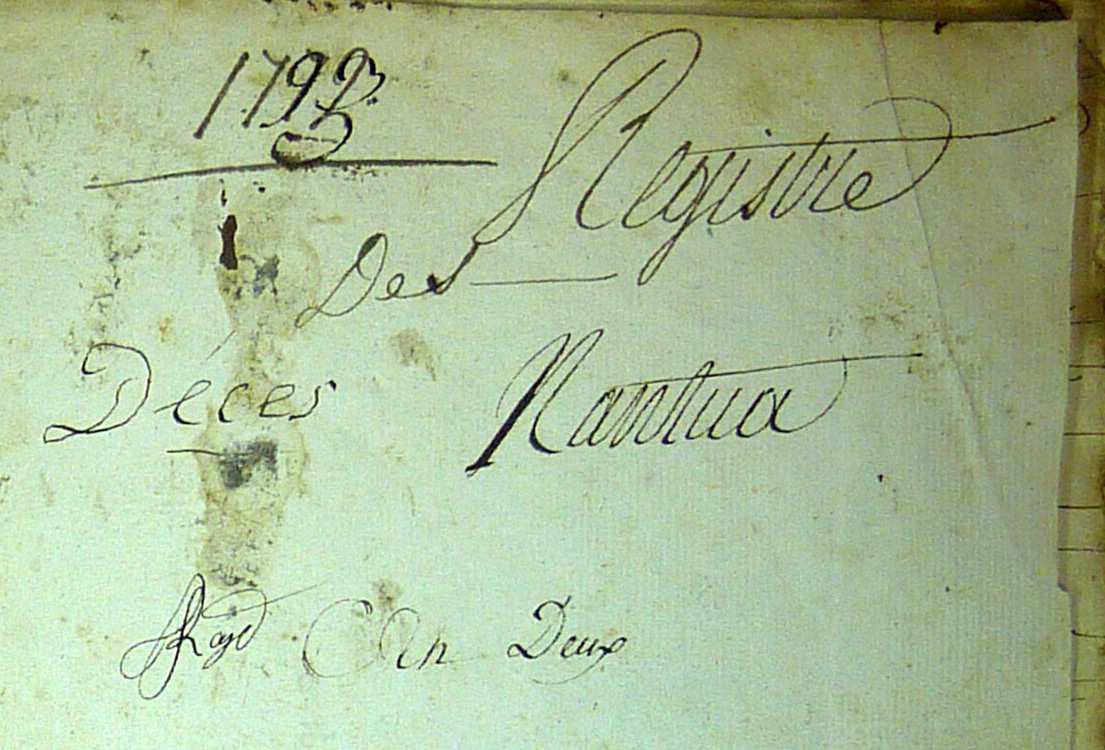 1793.
Registre
Des
Décès Nantua
En Deux